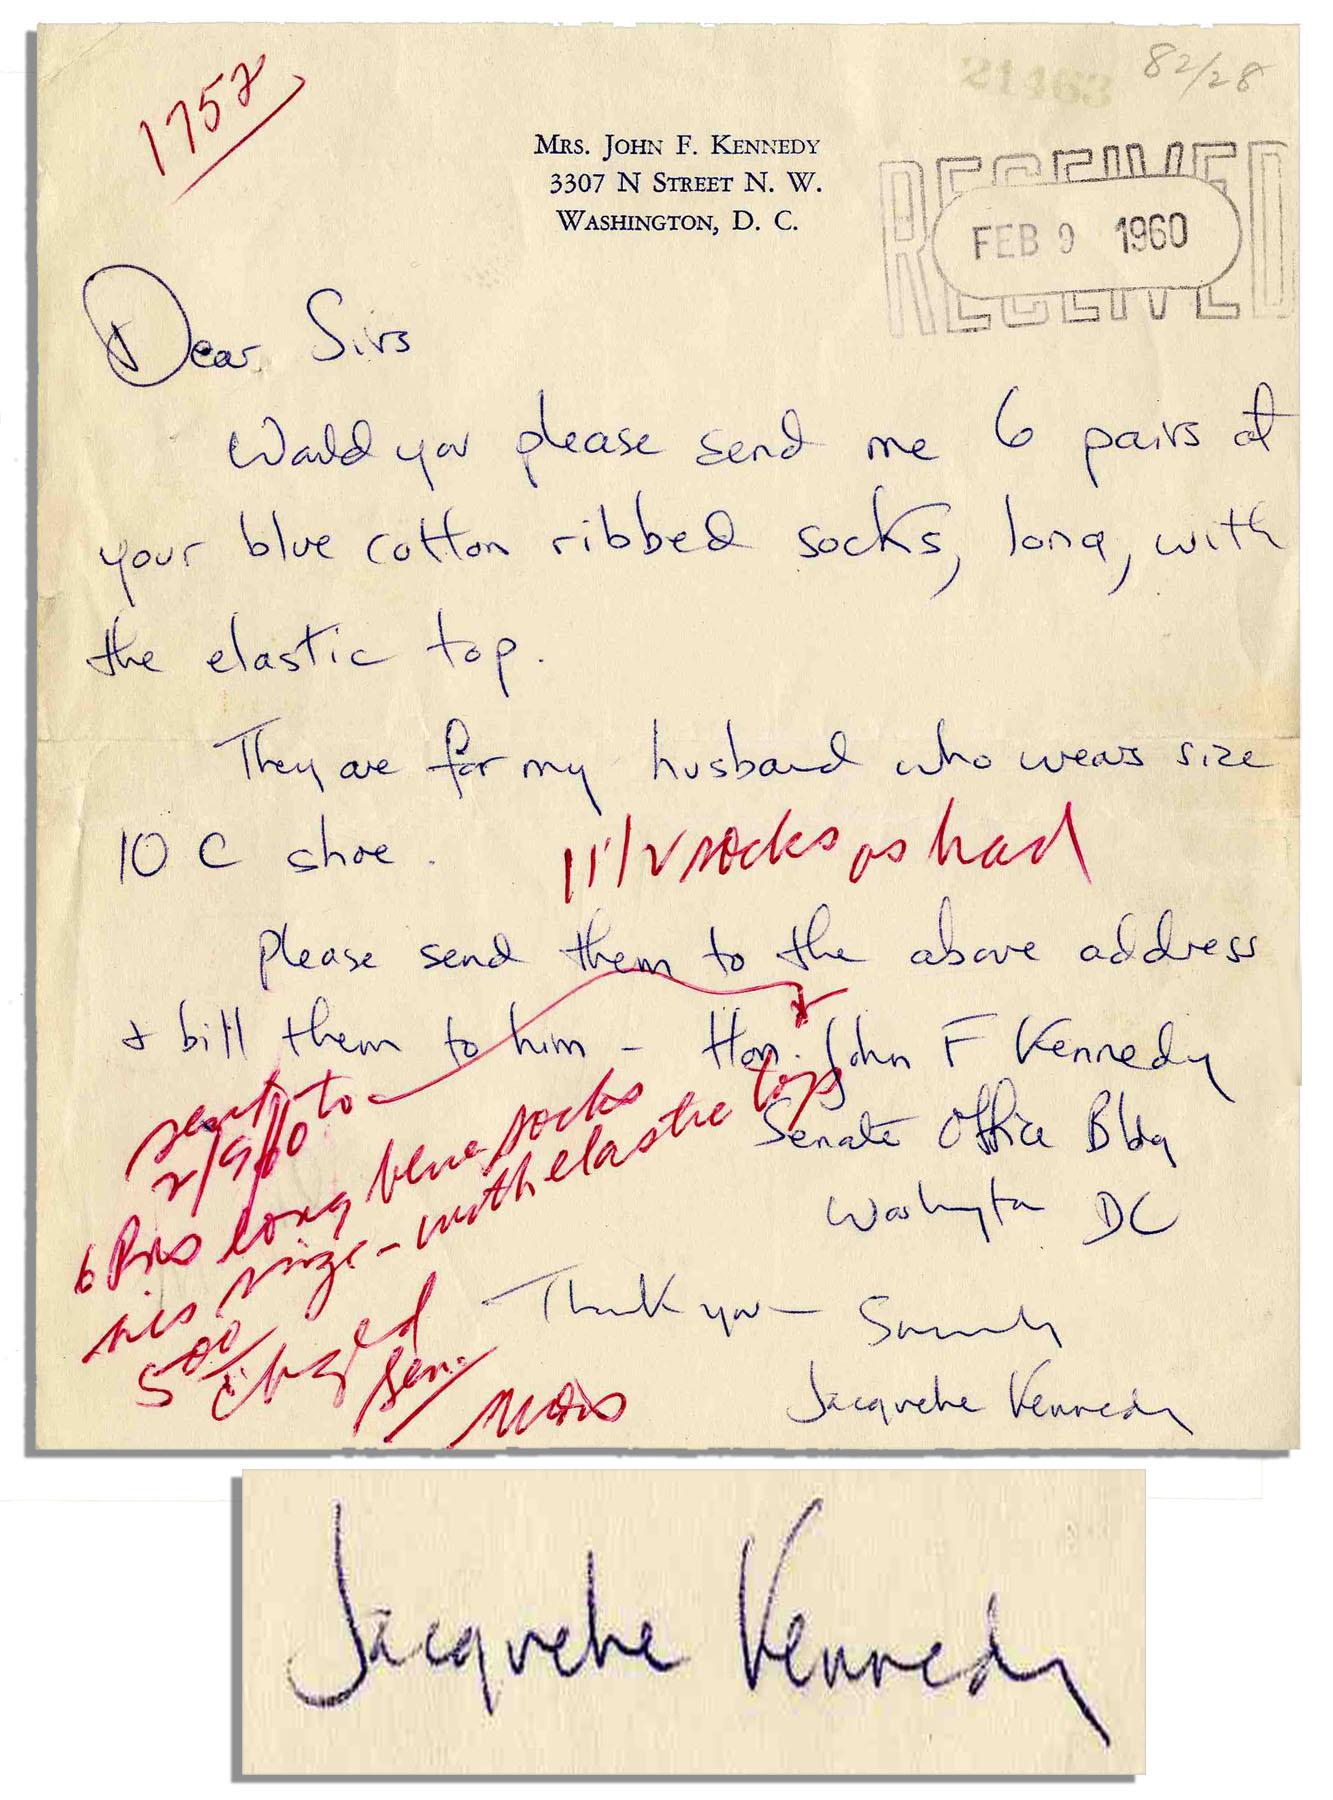 1757
21463
82/28
MRS. JOHN F. KENNEDY
3307 N STREET N. W.
WASHINGTON, D. C.
RECEIVED
FEB 9 1960
Dear Sirs
Would you please send me 6 pairs of
your blue cotton ribbed socks, long, with
the elastic top.
They are for my husband who wears size
10 C shoe.
11 1/2 socks as had
please send them to the above address
& bill them to him – Hon. John F Kennedy
Senate Office Bldg
Washington DC
sent to
2/9/60
6 Prs long blue socks
size – with elastic top
500
chgd
Sen.
Thank you – Sincerely
Jacqueline Kennedy
Jacqueline Kennedy